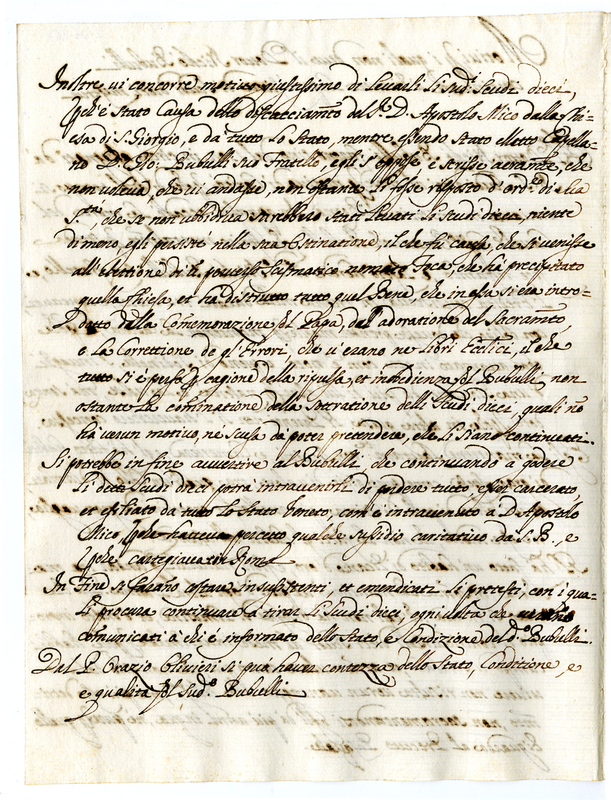 Inoltre vi concorre motivo giustissimo di levarli li sud.i scudi dieci,
p che è stato causa dello discacciam.to del S.r D. Apostolo Mico dalla Chi=
esa di S. Giorgio, e da tutto lo Stato, mentre essendo stato eletto Capella=
no D. Gio: Bubulli suo fratello, egli s'oppose, e scrisse, che
non voleva, che vi andasse, non ostante li fosse risposto d'ord.e di
S.tà, che se non ubbidiva sarebbero stati levati li scudi dieci, niente
di meno egli persiste nella sua ostinatione, il che fù causa, che si venisse
all'elettione di Scismatico Foca, che hà precipitato
quella Chiesa, et hà distrutto tutto quel bene, che in essa si era intro=
dotto della Comemoratione del Papa, dell'adoratione del Sacram.to,
e la Correttione de gl'Errori, che vi erano ne libri Eccl.ci, il che
tutto si è perso p cagione della ripulsa, et inobedienza del Bubulli, non
ostante la cominatione della sottratione delli scudi dieci, quali nō
hà verun motivo, nè scusa da poter pretendere, che li siano continuati.
Si potrebbe in fine avvertire al Bubulli, che continuando à godere
li detti scudi dieci potrà intravenirli di perdere tutto, esser carcerato,
et esiliato da tutto lo Stato Veneto, com'è intravenuto à D. Apostolo
Mico, p che haveva percetto qualche sussidio caritativo da S. B., e
p che cartegiava in Roma
In fine si faranno costare insussistenti, et emendicati li pretesti, con i qua=
li procura continuare à tirar li scudi dieci, ogni volta che
comunicati à chi è informato dello stato, e conditione del d.o Bubulli.
Dal P. Orazio Olivieri si può haver contezza dello Stato, Conditione, e
e qualità del sud.o Bubulli